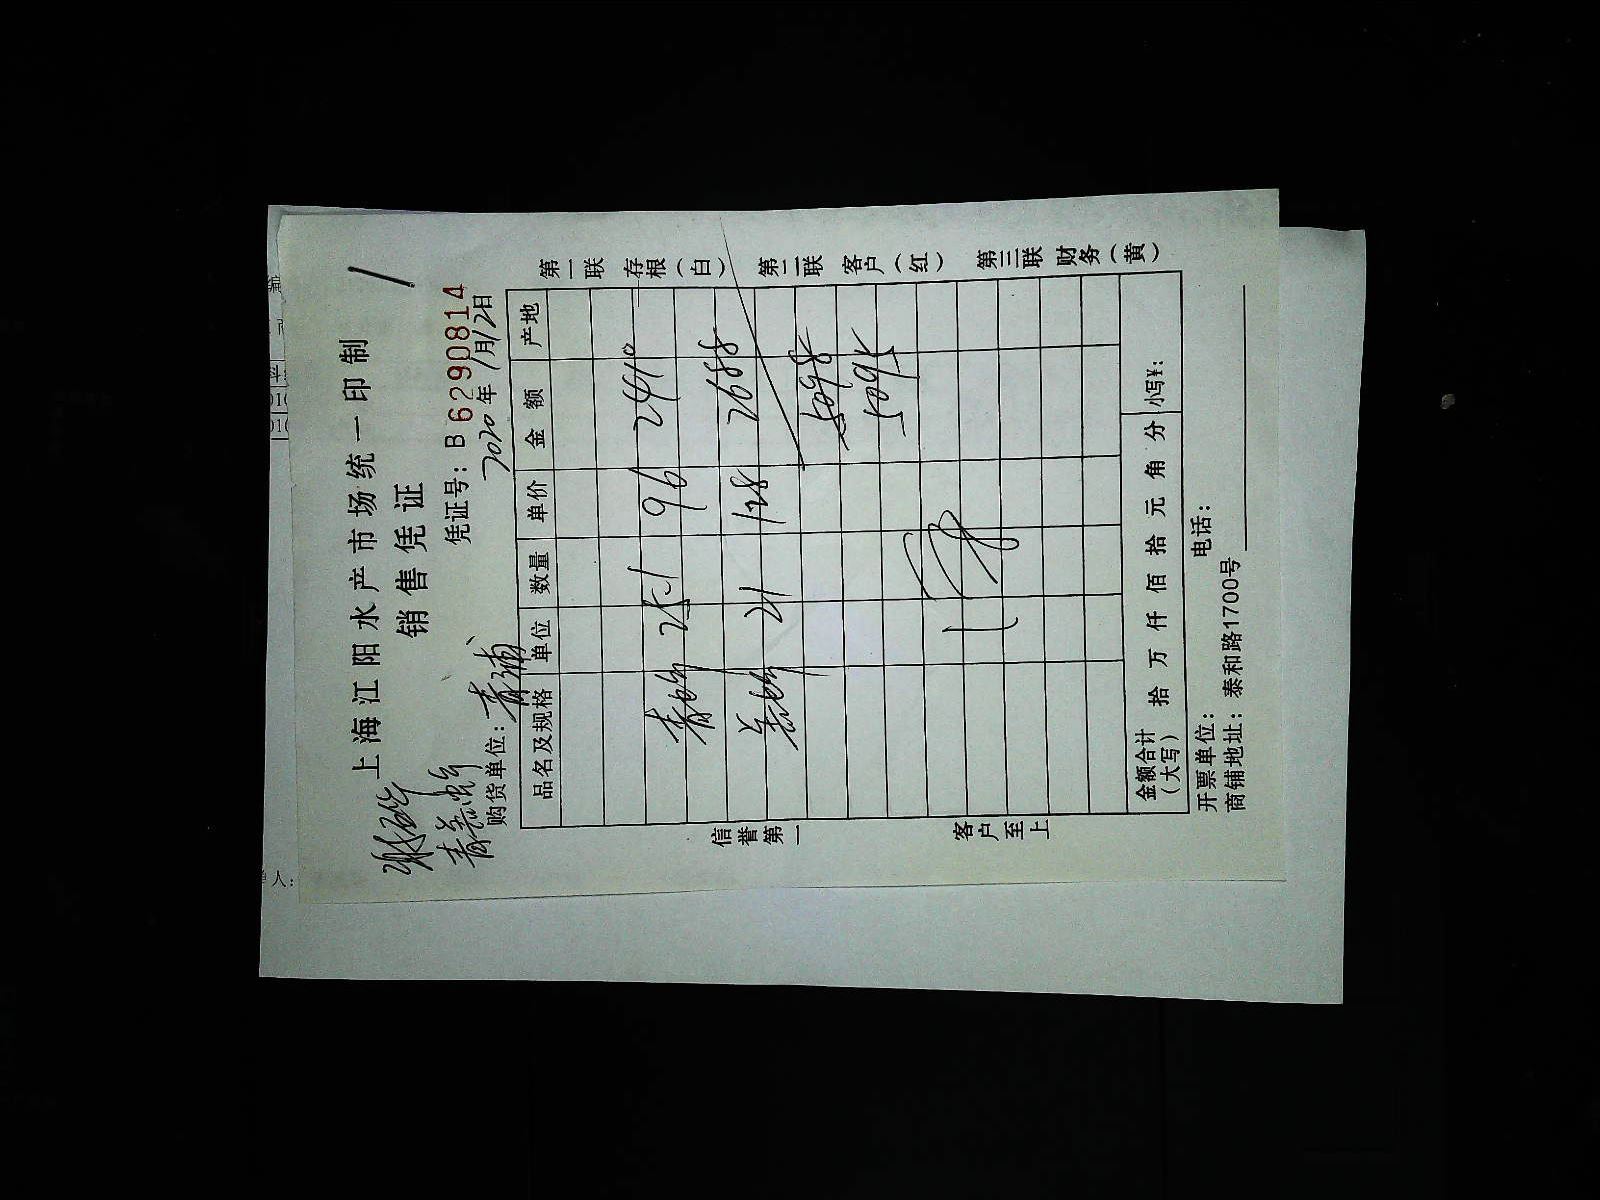 上海江阳水产市场统一印制
销售凭证
凭证号：B 6290814
2020年1月12日
购货单位：青浦
品名及规格 单位 数量 单价 金额 产地
25.1 96 2410
21 128 2688
5098
5098
金额合计（大写） 拾 万 仟 佰 拾 元 角 分 小写¥：
开票单位： 电话：
商铺地址：泰和路1700号
信誉第一 客户至上
第一联 存根（白） 第二联 客户（红） 第三联 财务（黄）
人：